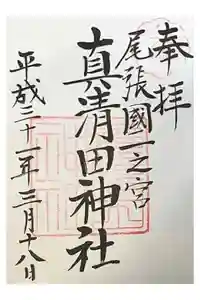 奉拝
尾張國一之宮
真清田神社
平成二十一年三月十八日